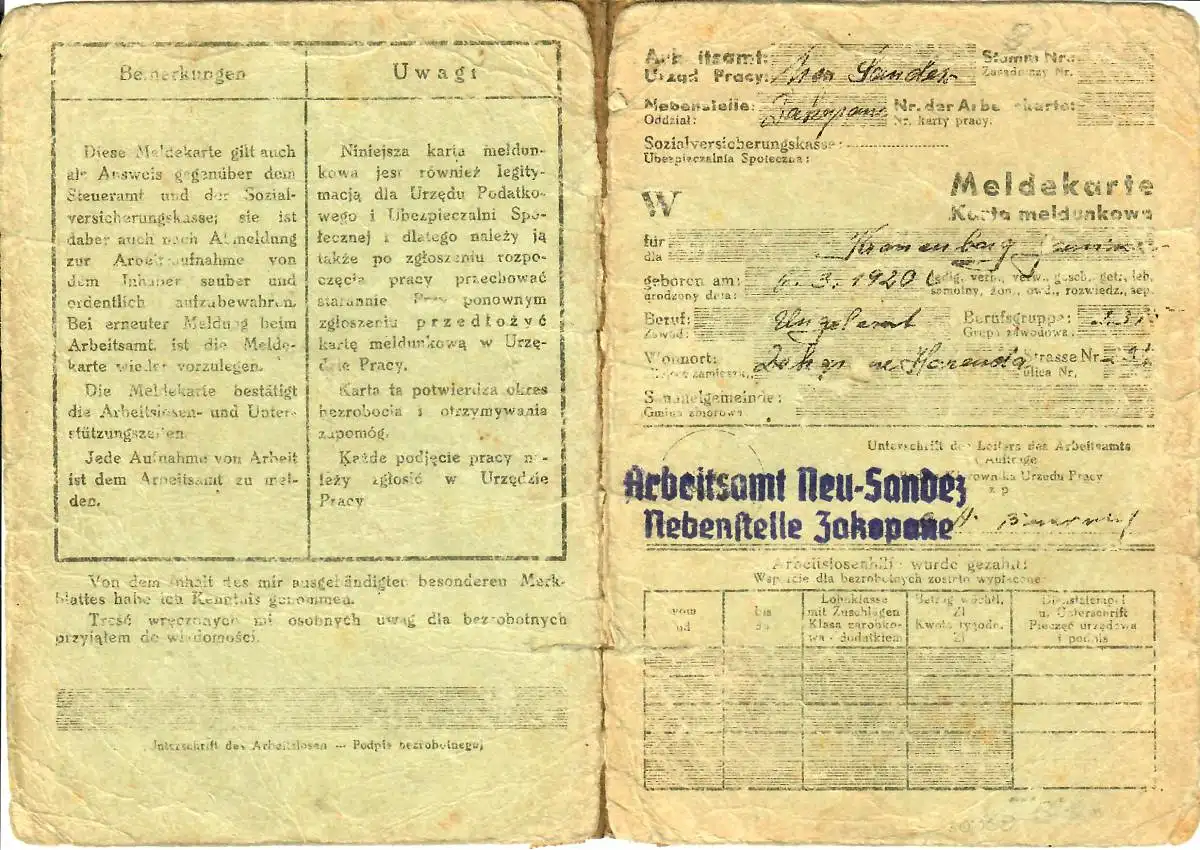 Bemerkungen
Diese Meldekarte gilt auch
als Ausweis gegenüber dem
Steueramt und der Sozial-
versicherungskasse; sie ist
daher auch nach Abmeldung
zur Arbeitsaufnahme von
dem Inhaber sauber und
ordentlich aufzubewahren.
Bei erneuter Meldung beim
Arbeitsamt ist die Melde-
karte wieder vorzulegen.
Die Meldekarte bestätigt
die Arbeitslosen- und Unter-
stützungszeiten
Jede Aufnahme von Arbeit
ist dem Arbeitsamt zu mel-
den.
Uwagi
Niniejsza karta meldun-
kowa jest również legity-
macją dla Urzędu Podatko-
wego i Ubezpieczalni Spo-
łecznej i dlatego należy ją
także po zgłoszeniu rozpo-
częcia pracy przechować
starannie Przy ponownym
zgłoszeniu przedłożyć
kartę meldunkową w Urzę-
dzie Pracy.
Karta ta potwierdza okres
bezrobocia i otrzymywania
zapomóg.
Każde podjęcie pracy na-
leży zgłosić w Urzędzie
Pracy
Von dem Inhalt des mir ausgehändigten besonderen Merk-
blattes habe ich Kenntnis genommen.
Treść wręczonych mi osobnych uwag dla bezrobotnych
przyjąłem do wiadomości.
Unterschrift des Arbeitslosen — Podpis bezrobotnego
Arbeitsamt: Stamm Nr.:
Urząd Pracy: Neu Sandez Zasadniczy Nr.
Nebenstelle: Zakopane Nr. der Arbeitskarte:
Oddział: Nr. karty pracy:
Sozialversicherungskasse:
Ubezpieczalnia Społeczna:
W
Meldekarte
Karta meldunkowa
für Kronenberg
dla
geboren am: 3. 1920 ledig, verh., verw., gesch., getr. leb.
urodzony dnia: samotny, żon., owd., rozwiedz., sep.
Beruf: Ungelernt Berufsgruppe:
Zawód: Grupa zawodowa:
Wohnort: Strasse Nr.
Miejsce zamieszk. ulica Nr.
Sammelgemeinde:
Gmina zbiorowa
Unterschrift des Leiters des Arbeitsamts
i Auftrage
Kierownika Urzędu Pracy
z p
Arbeitsamt Neu-Sandez
Nebenstelle Zakopane
Arbeitslosenhilfe wurde gezahlt:
Wsparcie dla bezrobotnych zostało wypłacone:
vom
od
bis
do
Lohnklasse
mit Zuschlägen
Klasa zarobko-
wa - dodatkiem
Betrag wöchtl.
Zl
Kwota tygodn.
Zl
Dienststempel
u. Unterschrift
Pieczęć urzędowa
i podpis